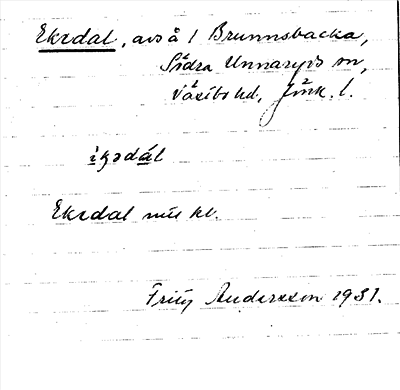 Ekedal, avs å 1 Brunnsbacka,
Södra Unnaryds sn,
Västbo hd, Jönk. l.
ìkədál
Ekedal
Fritz Andersson 1931.